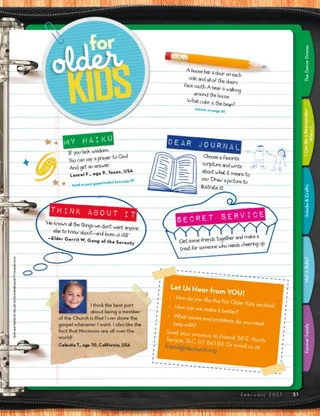 for
older
KIDS
A house has a door on each
side and all of the doors
face south. A bear is walking
around the house.
What color is the bear?
MY HAIKU
If you lack wisdom,
You can say a prayer to God
And get an answer.
Laurel F., age 9, Texas, USA
DEAR JOURNAL
Choose a favorite
scripture and write
about what it means to
you. Draw a picture to
illustrate it!
THINK ABOUT IT
"He knows all the things we don't want anyone
else to know about—and loves us still."
—Elder Gerrit W. Gong of the Seventy
SECRET SERVICE
Get some friends together and make a
treat for someone who needs cheering up.
I think the best part
about being a member
of the Church is that I can share the
gospel whenever I want. I also like the
fact that Mormons are all over the
world.
Celeste T., age 10, California, USA
Let Us Hear from YOU!
• How do you like the For Older Kids section?
• How can we make it better?
• What issues and problems do you need
help with?
Send your answers to Friend, 50 E. North
Temple, SLC, UT 84150. Or email us at
friend@ldschurch.org.
February 2017 31